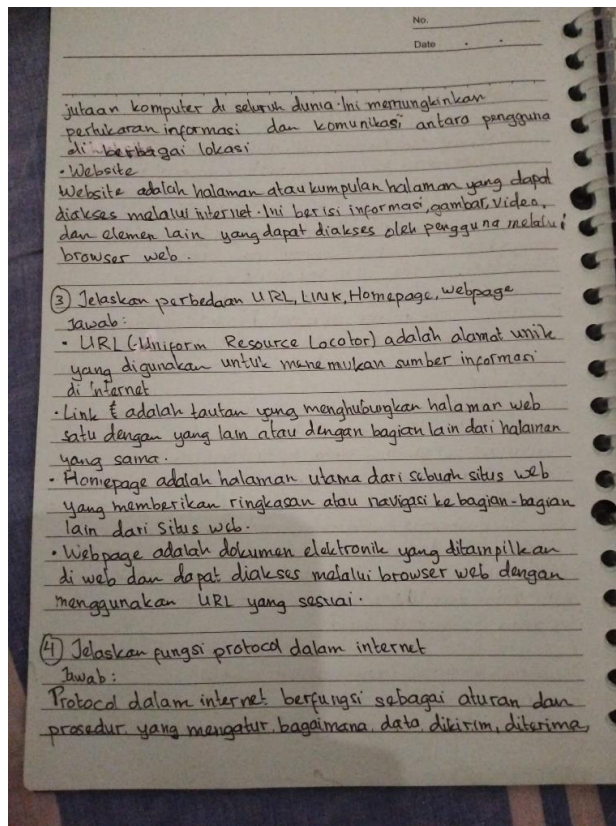 No.
Date
jutaan komputer di seluruh dunia. Ini memungkinkan
pertukaran informasi dan komunikasi antara pengguna
di berbagai lokasi
• Website
Website adalah halaman atau kumpulan halaman yang dapat
diakses melalui internet. Ini berisi informasi, gambar, video,
dan elemen lain yang dapat diakses oleh pengguna melalui
browser web.
③ Jelaskan perbedaan URL, LINK, Homepage, webpage
Jawab:
• URL (Uniform Resource Locotor) adalah alamat unik
yang digunakan untuk menemukan sumber informasi
di internet
• Link adalah tautan yang menghubungkan halaman web
satu dengan yang lain atau dengan bagian lain dari halaman
yang sama.
• Homepage adalah halaman utama dari sebuah situs web
yang memberikan ringkasan atau navigasi ke bagian-bagian
lain dari situs web.
• Webpage adalah dokumen elektronik yang ditampilkan
di web dan dapat diakses melalui browser web dengan
menggunakan URL yang sesuai.
④ Jelaskan fungsi protocol dalam internet
Jawab:
Protocol dalam internet berfungsi sebagai aturan dan
prosedur yang mengatur bagaimana data dikirim, diterima,